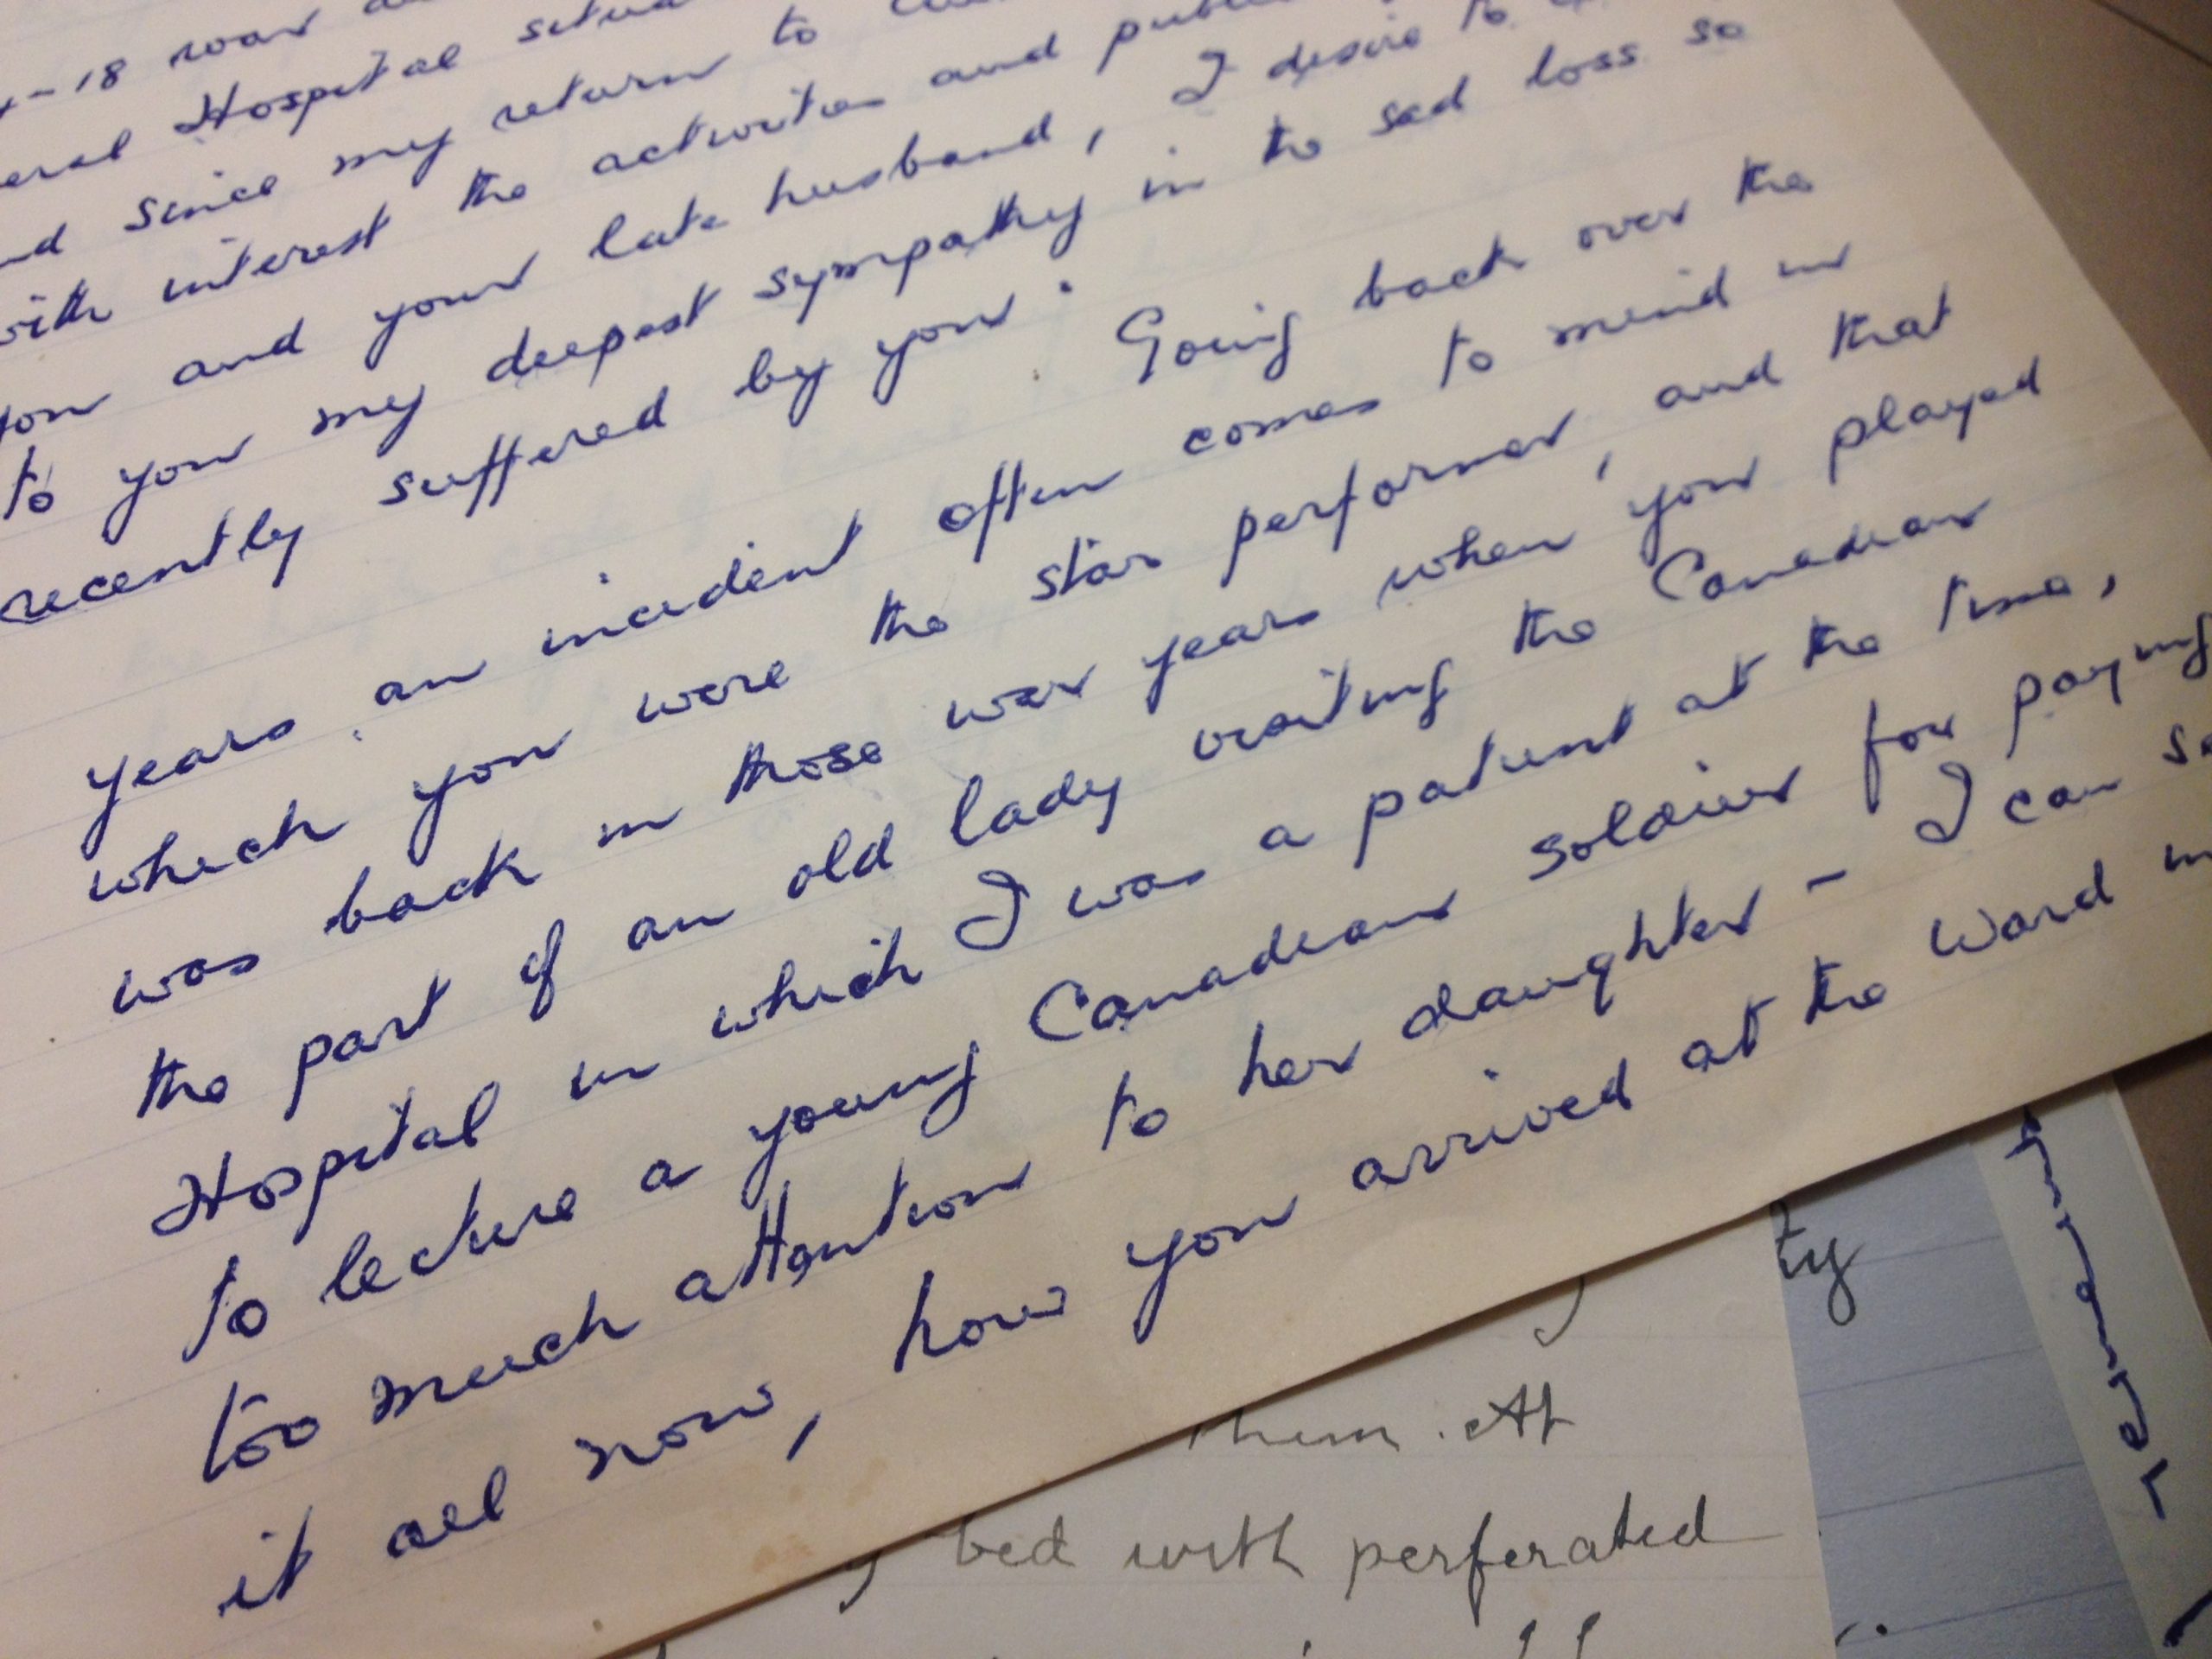 -18 war
Hospital
since my return to
with interest the activities and
and your late husband, I desire to
to you my deepest sympathy in the sad loss so
recently suffered by you. Going back over the
years an incident often comes to mind in
which you were the star performer, and that
was back in those war years when you played
the part of an old lady visiting the Canadian
Hospital in which I was a patient at the time,
to lecture a young Canadian soldier for paying
too much attention to her daughter - I can
it all now, how you arrived at the Ward
ty
them. At
bed with perferated